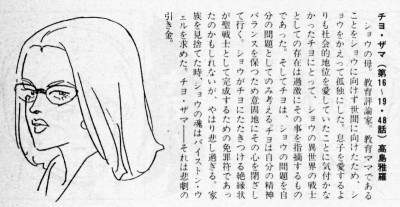 チヨ・ザマ（第16～19・48話）高島雅羅
　ショウの母。教育評論家。教育ママである
ことをショウに向けず世間に向けたため、シ
ョウをかえって孤独にした。息子を愛するよ
りも社会的地位を愛していたことに気付かな
かったチヨにとって、ショウの異世界の戦士
としての存在は過激にその事を指摘するもの
であった。そしてチヨは、ショウの問題を自
分の問題としてのみ考える。チヨは自分の精神
バランスを保つため意固地にその心を閉ざし
て行く。ショウがチヨにたたきつける絶縁状
が聖戦士として完成するための免罪符であっ
たのかもしれないが、やはり悲し過ぎる。家
族を見捨てた時、ショウの魂はバイストン・ウ
ェルを求めた。チヨ・ザマ――それは悲劇の
引き金。